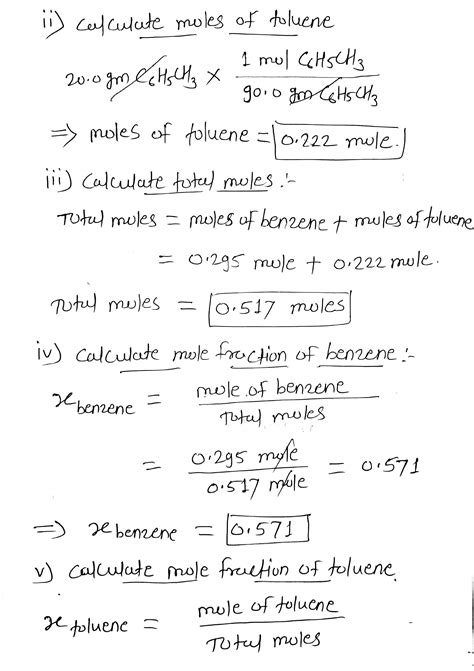 ii) Calculate moles of toluene
20.0 gm C6H5CH3 × 1 mol C6H5CH3 / 90.0 gm C6H5CH3
⇒ moles of toluene = 0.222 mole.
iii) Calculate total moles :-
Total moles = moles of benzene + moles of toluene
= 0.295 mole + 0.222 mole.
Total moles = 0.517 moles
iv) Calculate mole fraction of benzene :-
x benzene = mole of benzene / Total moles
= 0.295 mole / 0.517 mole = 0.571
⇒ x benzene = 0.571
v) Calculate mole fraction of toluene
x toluene = mole of toluene / Total moles